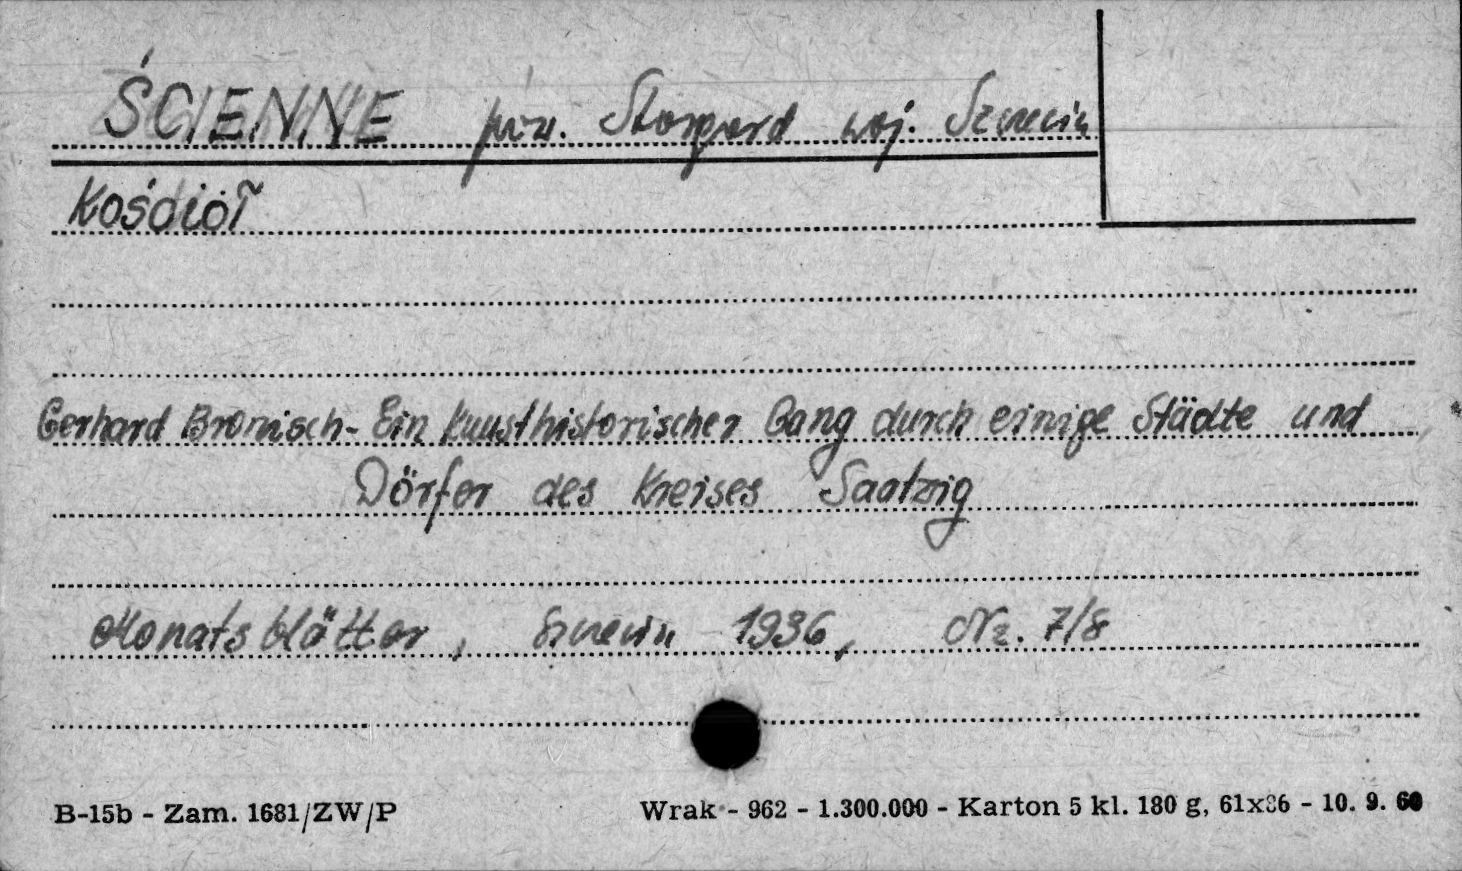 ŚCIENNE pow. Stargard woj. Szczecin
Kościół
Gerhard Bronisch - Ein kunsthistorischer Gang durch einige Städte und
Dörfer des Kreises Saatzig
Monatsblätter, Szczecin 1936, Nr. 7/8
B-15b - Zam. 1681/ZW/P Wrak - 962 - 1.300.000 - Karton 5 kl. 180 g, 61x86 - 10. 9. 60